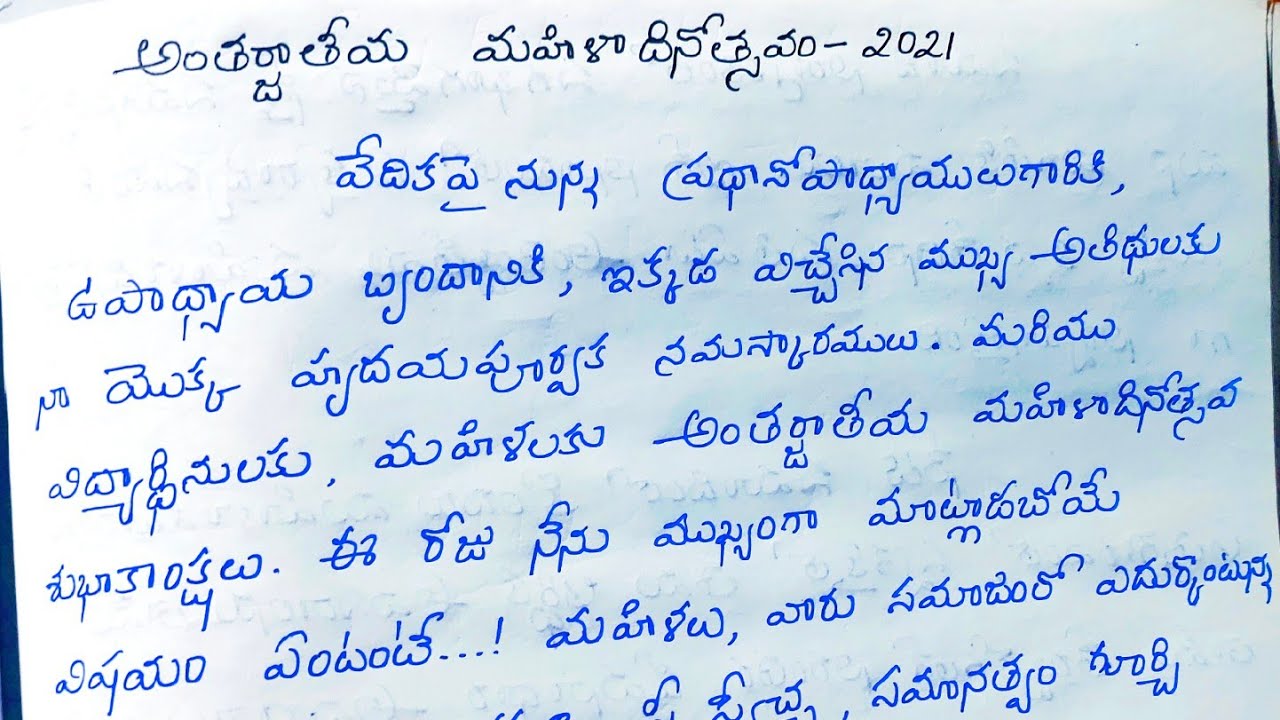 అంతర్జాతీయ మహిళా దినోత్సవం - 2021
వేదికపై నున్న ప్రధానోపాధ్యాయులుగారికి,
ఉపాధ్యాయ బృందానికి, ఇక్కడ విచ్చేసిన ముఖ్య అతిథులకు
నా యొక్క హృదయపూర్వక నమస్కారములు. మరియు
విద్యార్థినులకు, మహిళలకు అంతర్జాతీయ మహిళాదినోత్సవ
శుభాకాంక్షలు. ఈ రోజు నేను ముఖ్యంగా మాట్లాడబోయే
విషయం ఏంటంటే...! మహిళలు, వారు సమాజంలో ఎదుర్కొంటున్న
స్వేచ్ఛ, సమానత్వం గూర్చి